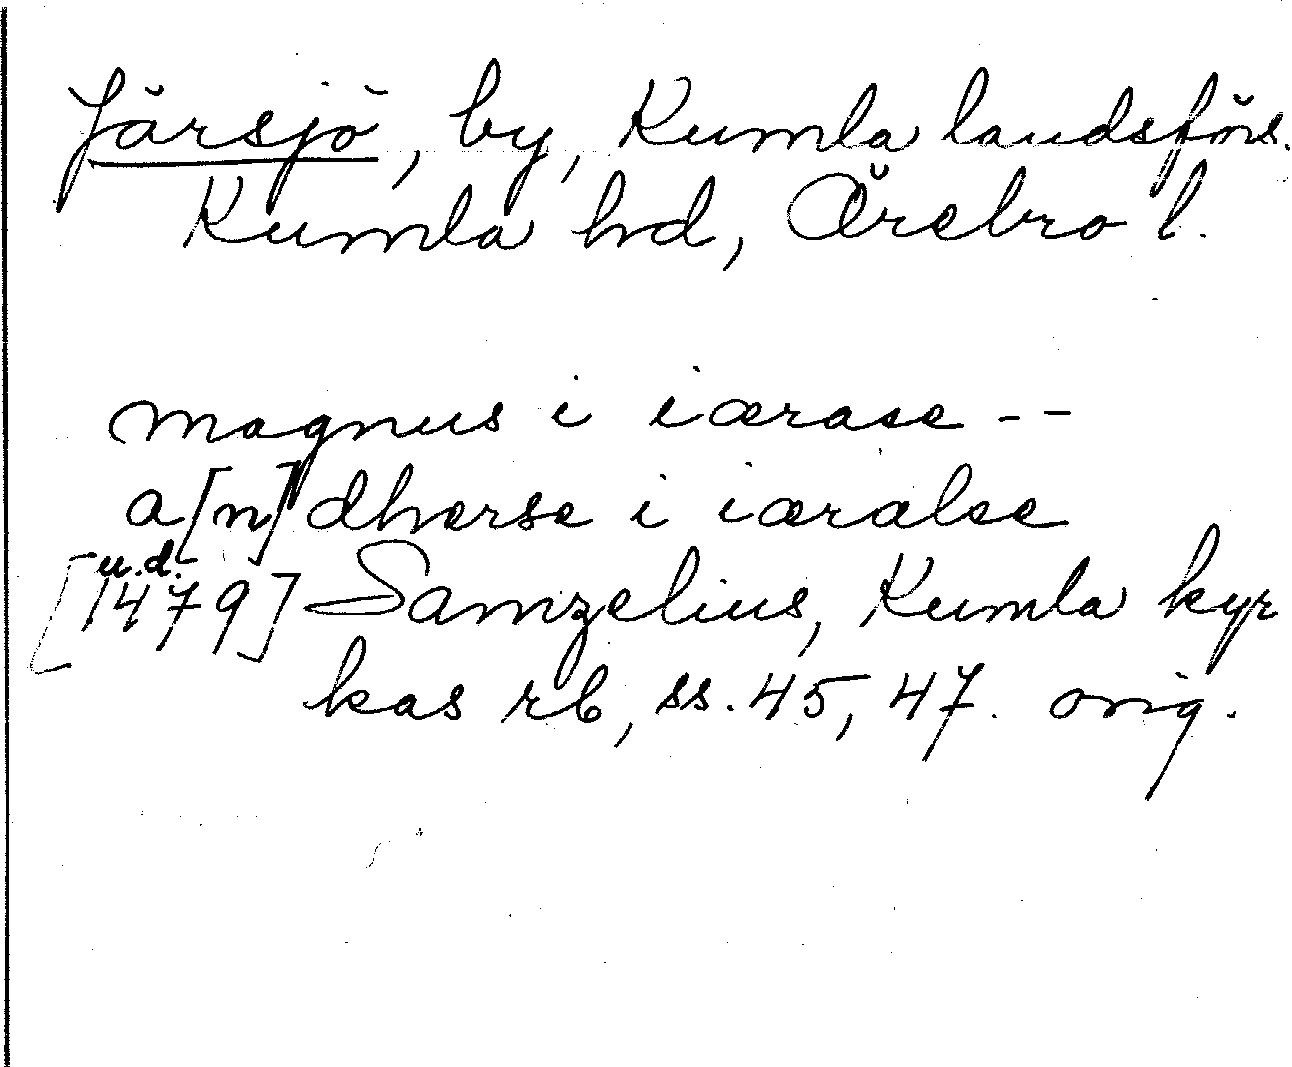 Järsjö, by, Kumla landsförs.
Kumla hd, Örebro l.
magnus i iærase --
a[n]dherse i iæralse
[u.d. 1479] Samzelius, Kumla kyr
kas rb, ss. 45, 47. orig.